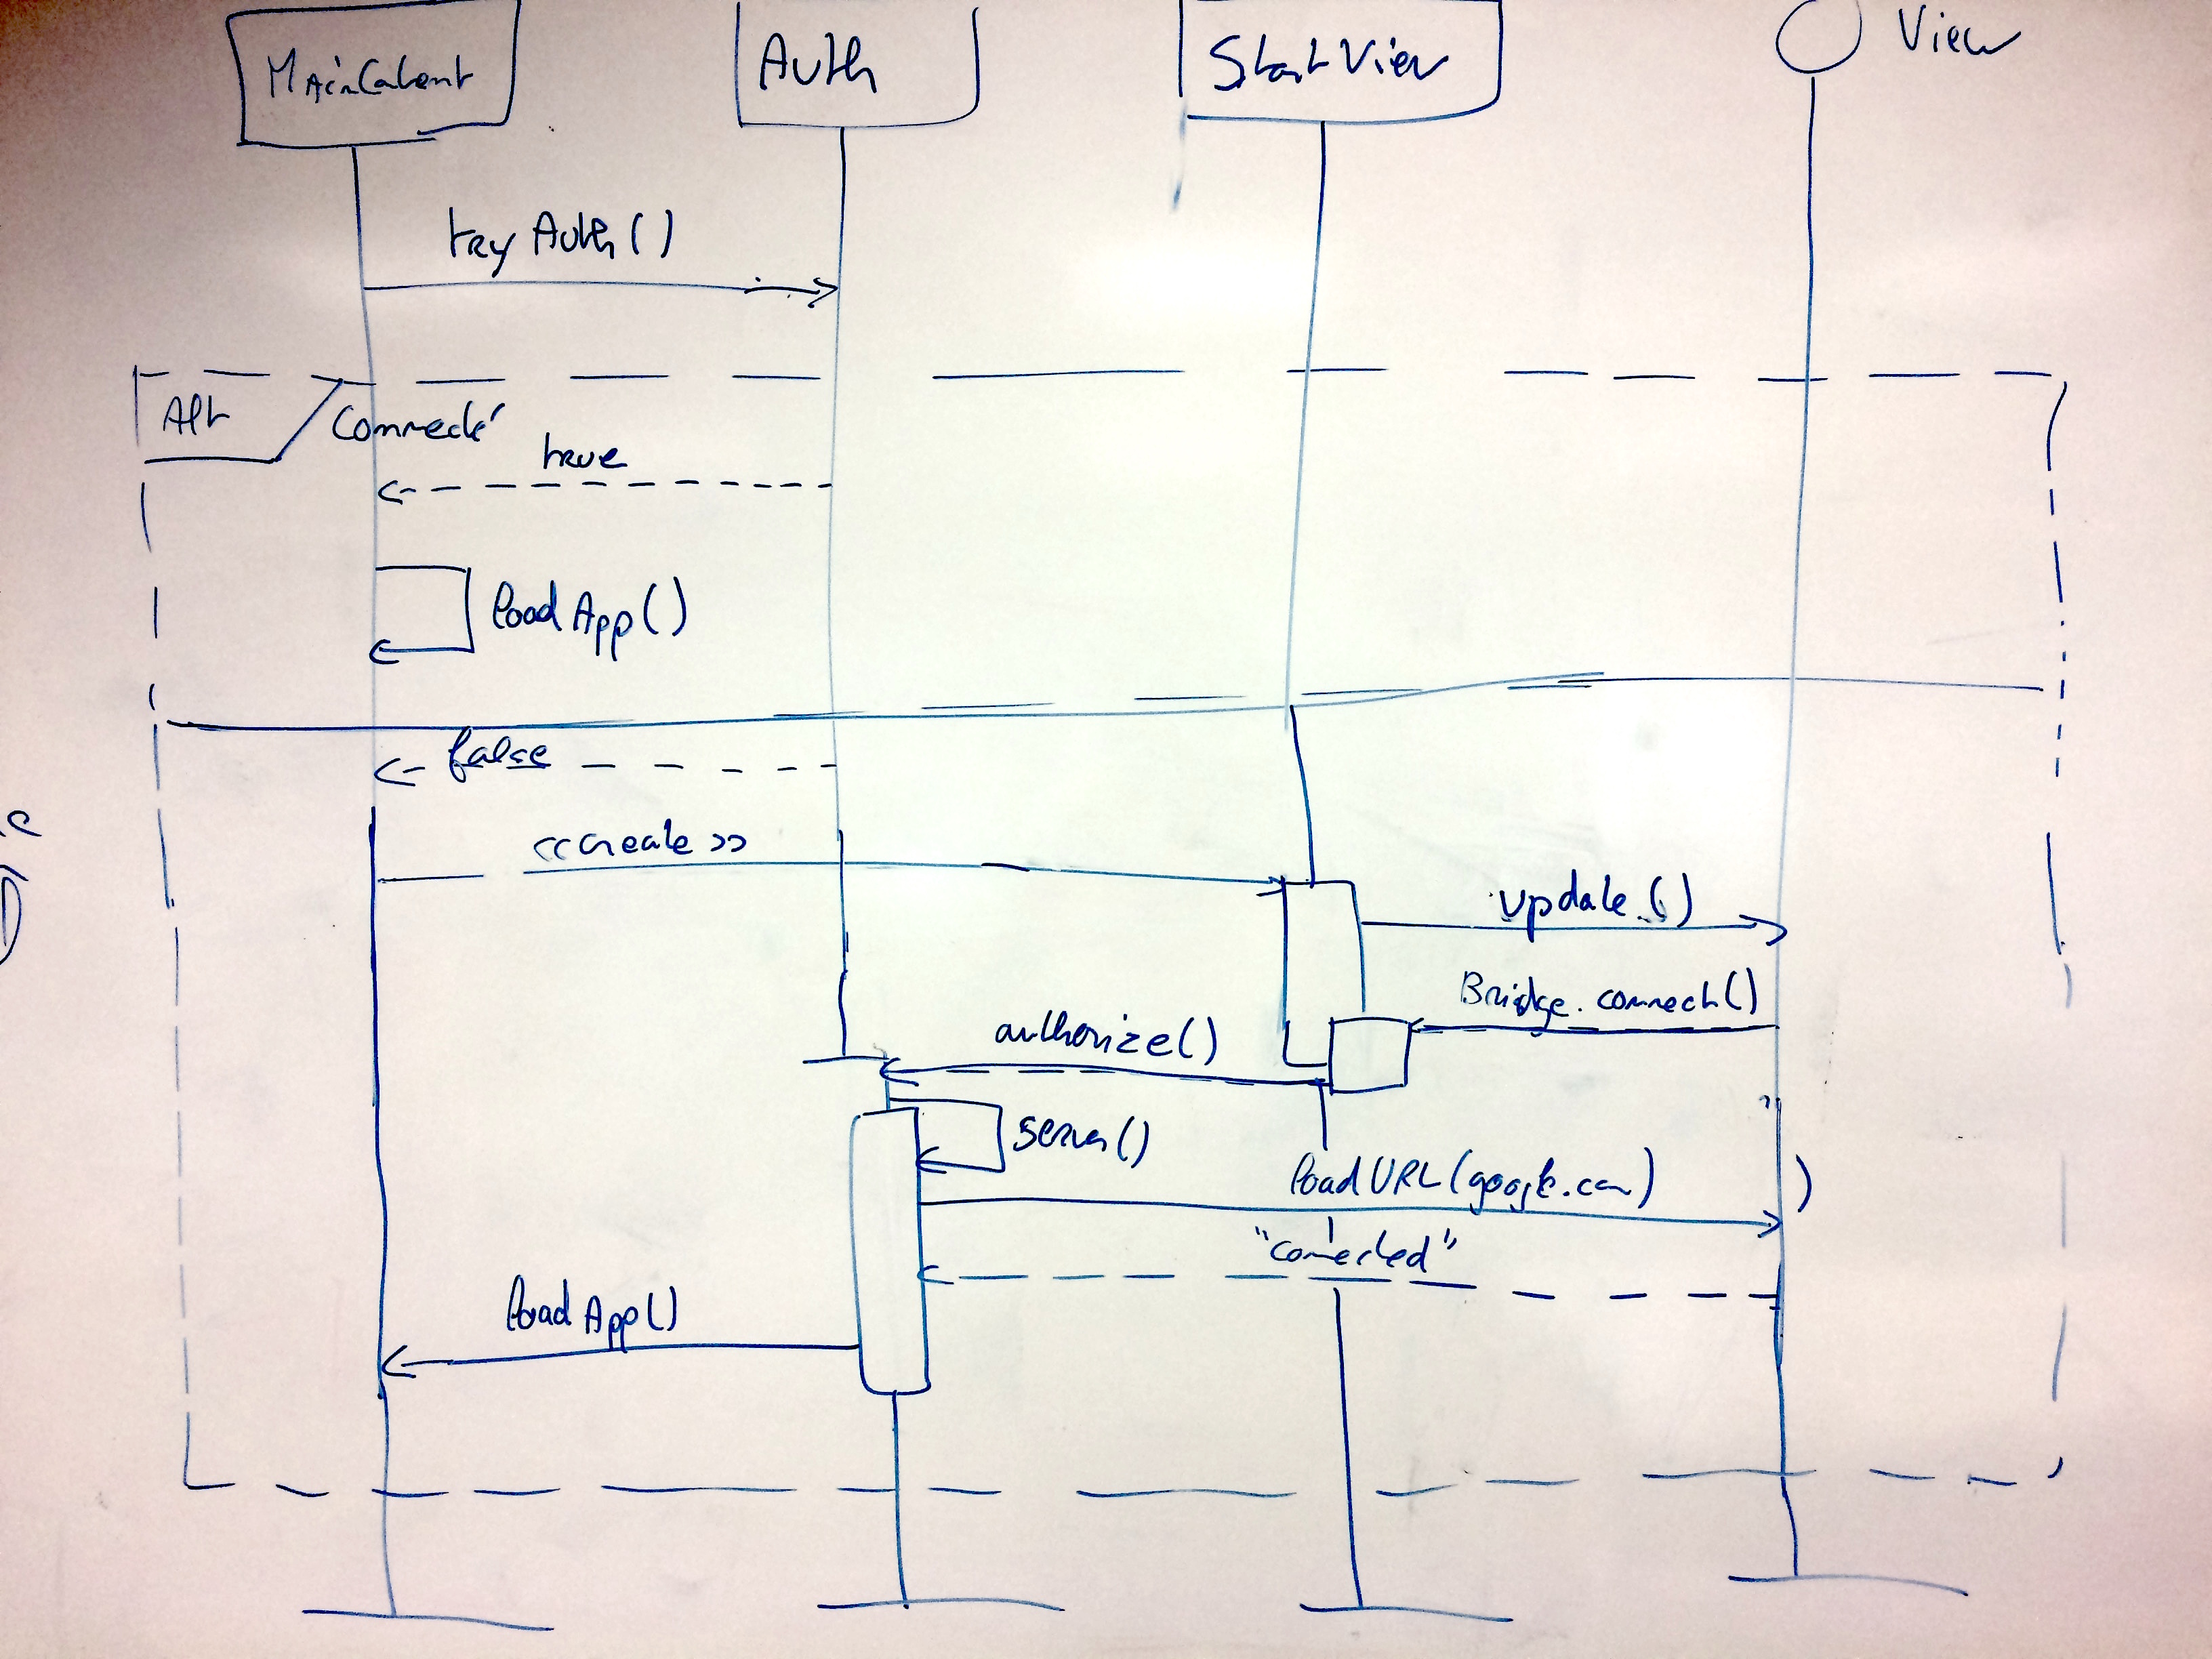 MainCalent
Auth
StartView
View
try Auth()
Alt
Connecté
true
load App()
false
<<create>>
update()
Bridge.connect()
authorize()
server()
load URL (google.com)
)
"connected"
load App()